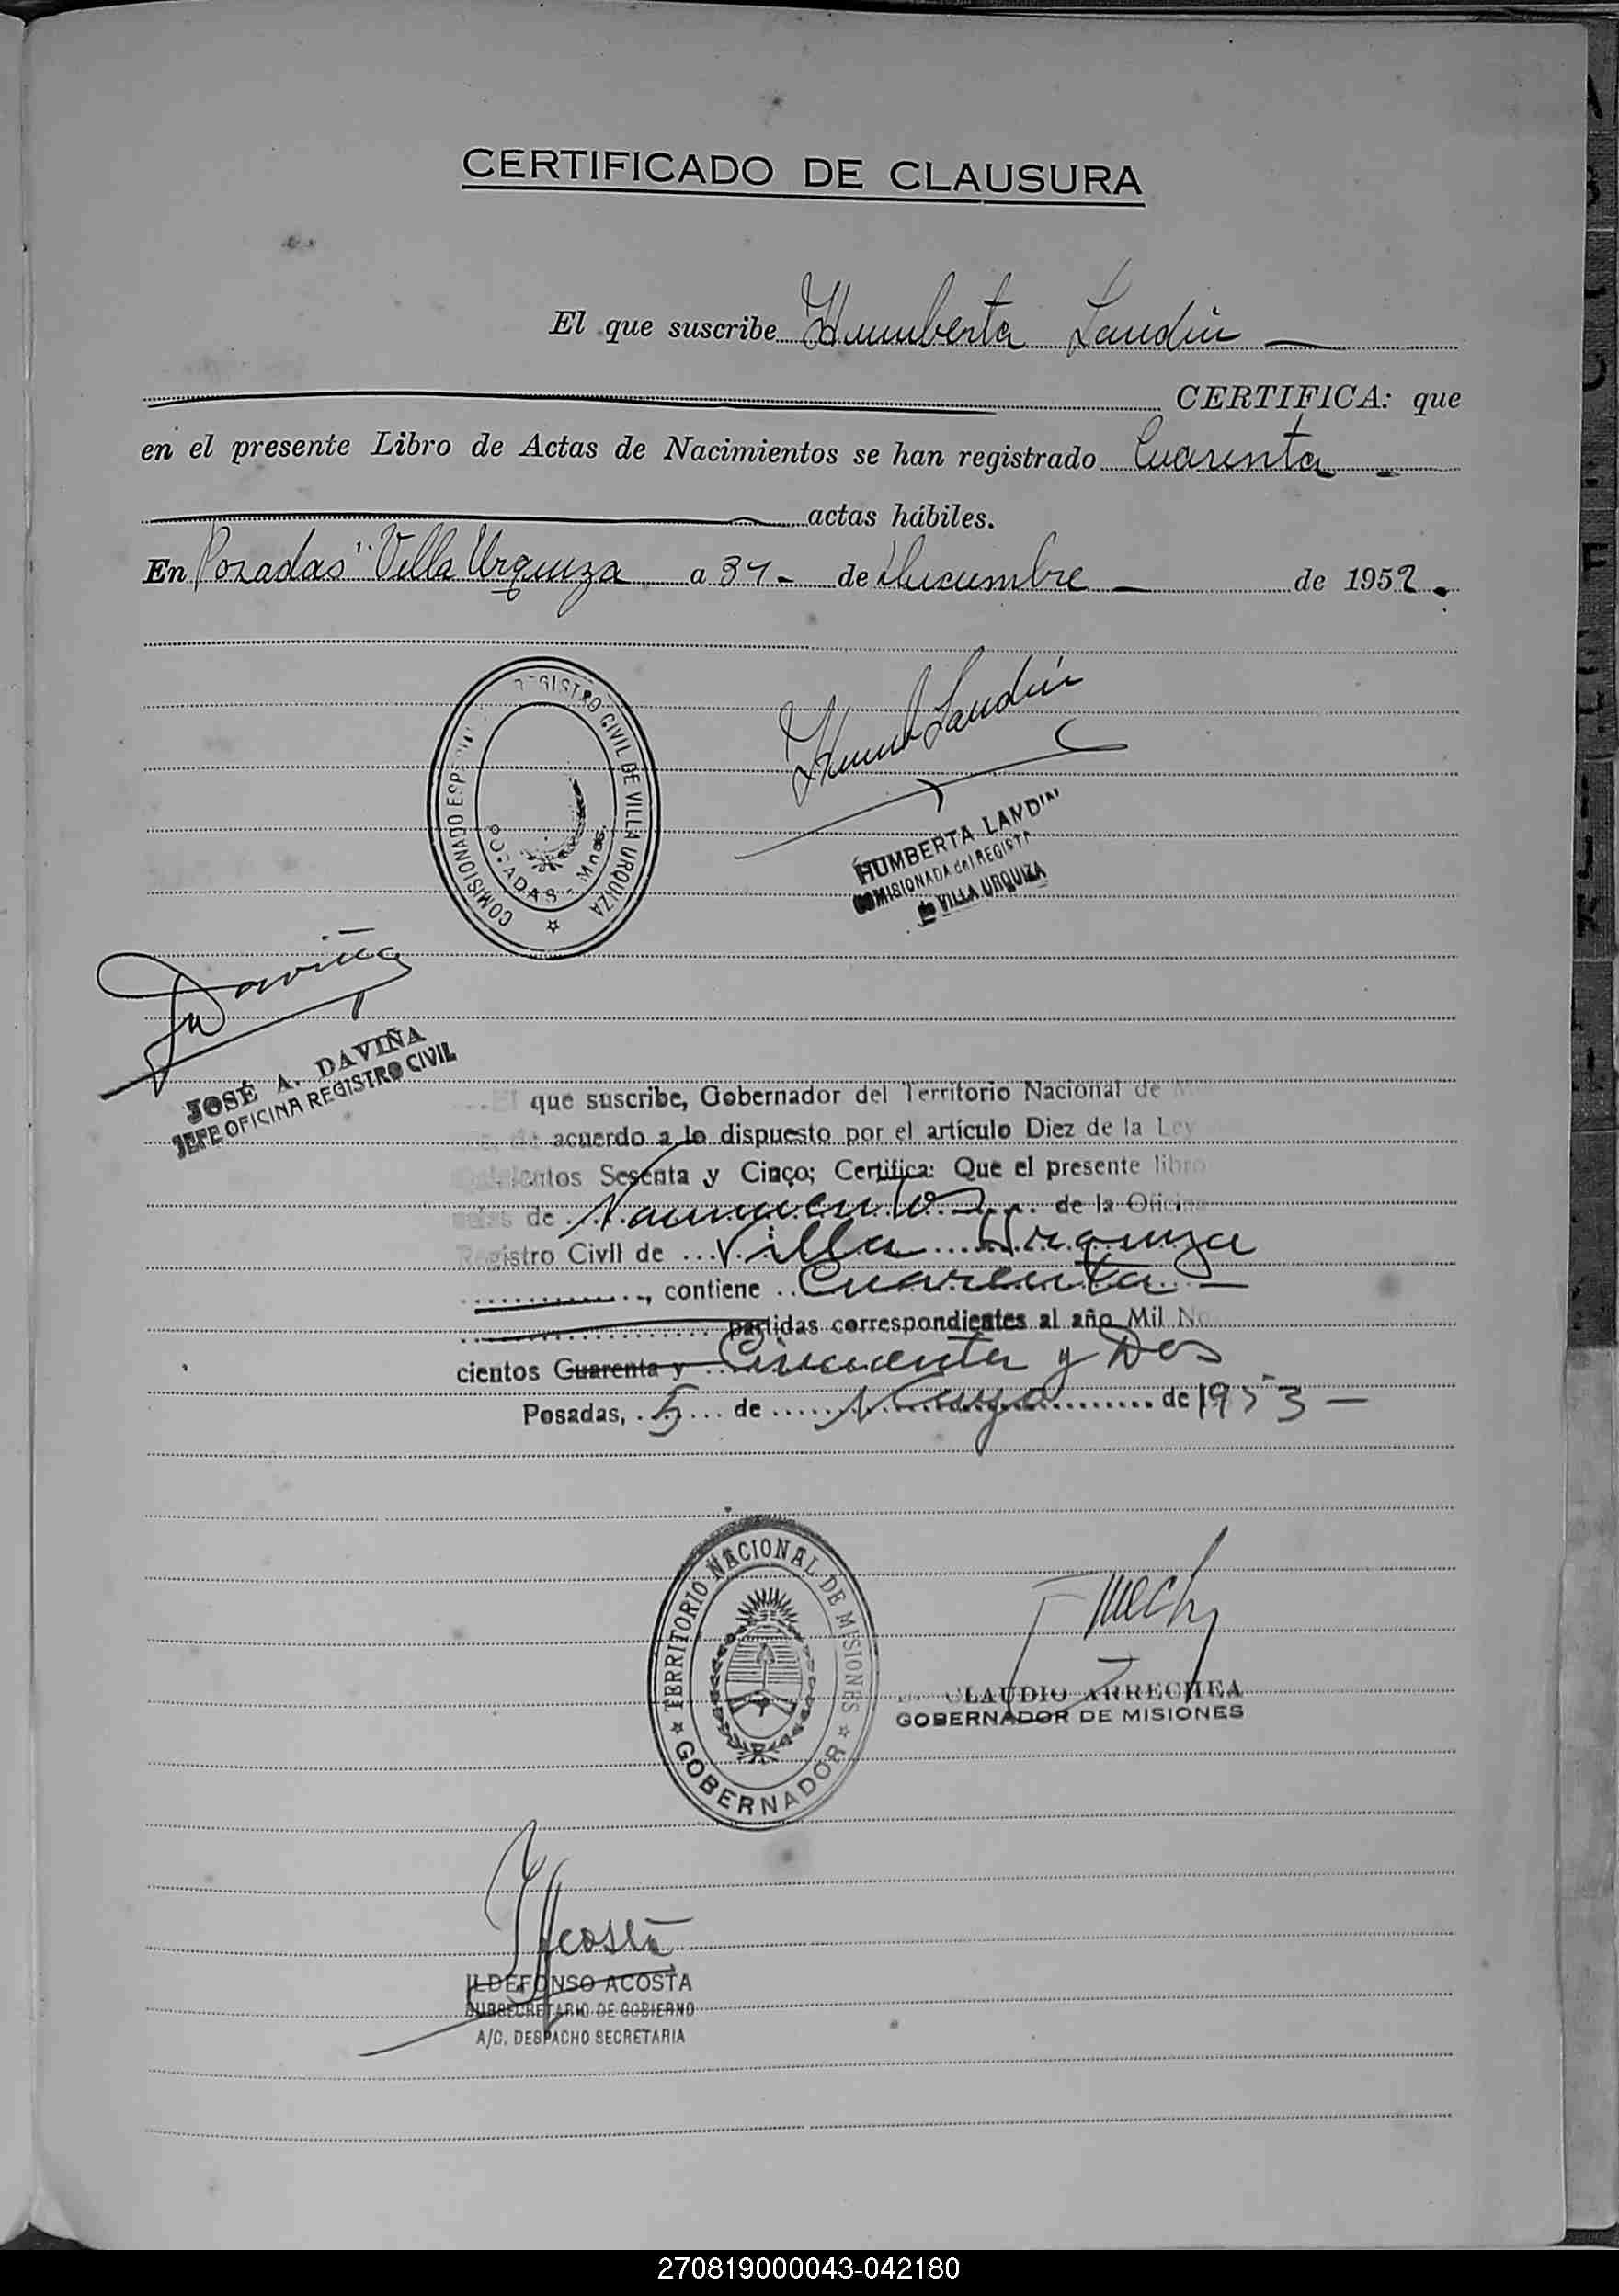 CERTIFICADO DE CLAUSURA
El que suscribe Humberta Landin
CERTIFICA: que
en el presente Libro de Actas de Nacimientos se han registrado Cuarenta
actas hábiles.
En Posadas "Villa Urquiza a 31 de Diciembre de 1952.
REGISTRO CIVIL DE VILLA URQUIZA
COMISIONADO
POSADAS - Mnes.
Humb Landin
HUMBERTA LANDIN
COMISIONADA del REGIST
de VILLA URQUIZA
Daviña
JOSÉ A. DAVIÑA
JEFE OFICINA REGISTRO CIVIL
El que suscribe, Gobernador del Territorio Nacional de M
de acuerdo a lo dispuesto por el artículo Diez de la Ley
Sesenta y Cinco; Certifica: Que el presente libro
de Nacimientos de la Oficina
Registro Civil de Villa Urquiza
, contiene Cuarenta
partidas correspondientes al año Mil No
cientos Cuarenta y Cincuenta y Dos
Posadas, 5 de Mayo de 1953
TERRITORIO NACIONAL DE MISIONES
GOBERNADOR
CLAUDIO ARRECHEA
GOBERNADOR DE MISIONES
Acosta
ILDEFONSO ACOSTA
SUBSECRETARIO DE GOBIERNO
A/C. DESPACHO SECRETARIA
270819000043-042180